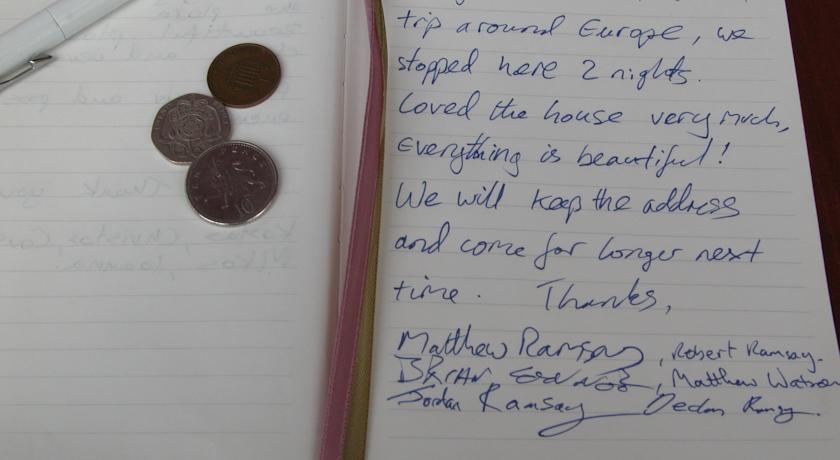 trip around Europe, we
stopped here 2 nights.
Loved the house very much,
Everything is beautiful!
We will keep the address
and come for longer next
time. Thanks,
Matthew Ramsay, Robert Ramsay.
BRIAN, Matthew Watson
Jordan Ramsay Declan Ramsay.